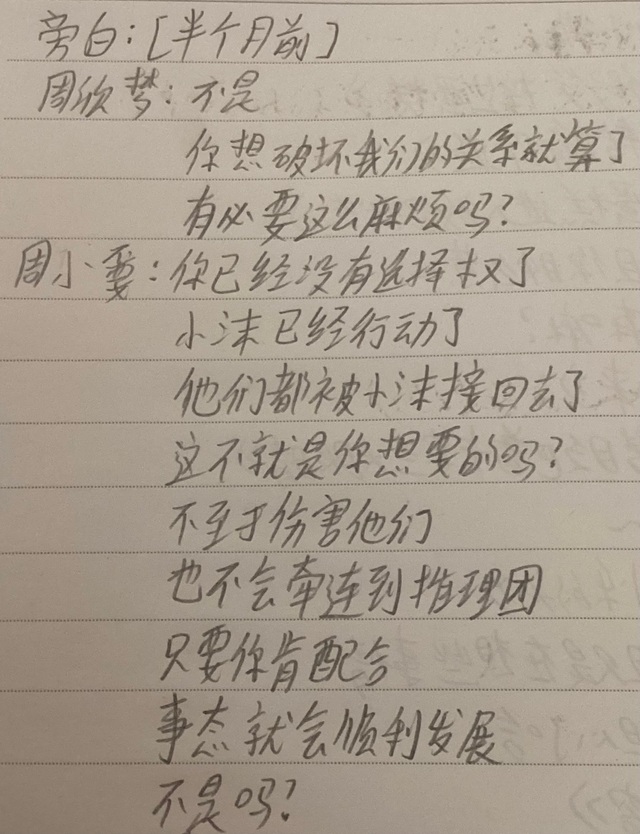 旁白：[半个月前]
周欣梦：不是
你想破坏我们的关系就算了
有必要这么麻烦吗？
周小雯：你已经没有选择权了
小沫已经行动了
他们都被小沫接回去了
这不就是你想要的吗？
不至于伤害他们
也不会牵连到推理团
只要你肯配合
事态就会顺利发展
不是吗？